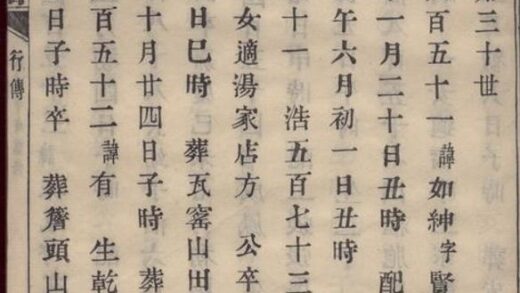 三十世
百五十一 諱如紳字賢
一月二十日丑時 配
午六月初一日丑時
十一 浩五百七十三
女適湯家店方 公卒
日巳時 葬瓦窑山田
十月廿四日子時 葬
百五十二 諱有 生乾
日子時卒 葬簷頭山
行傳